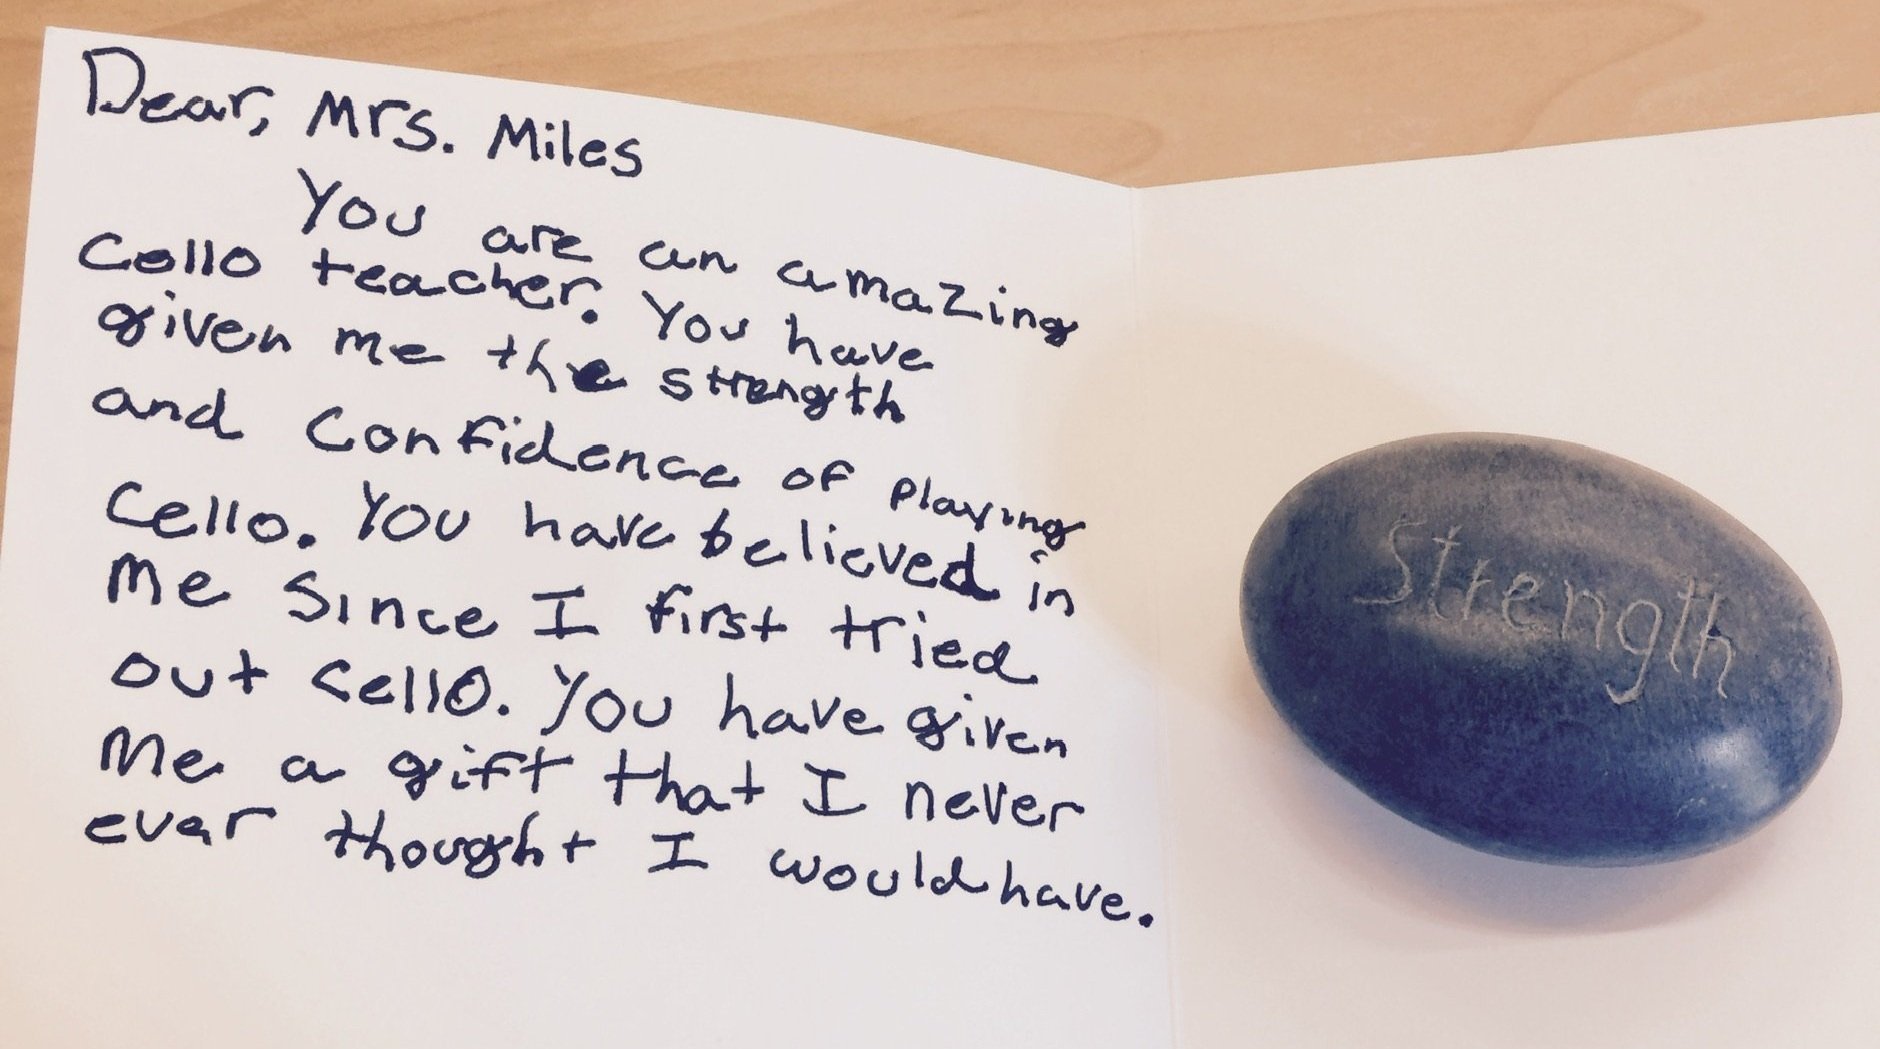 Dear, Mrs. Miles
You are an amazing
Cello teacher. You have
given me the strength
and confidence of playing
Cello. You have believed in
me since I first tried
out cello. You have given
me a gift that I never
ever thought I would have.
Strength